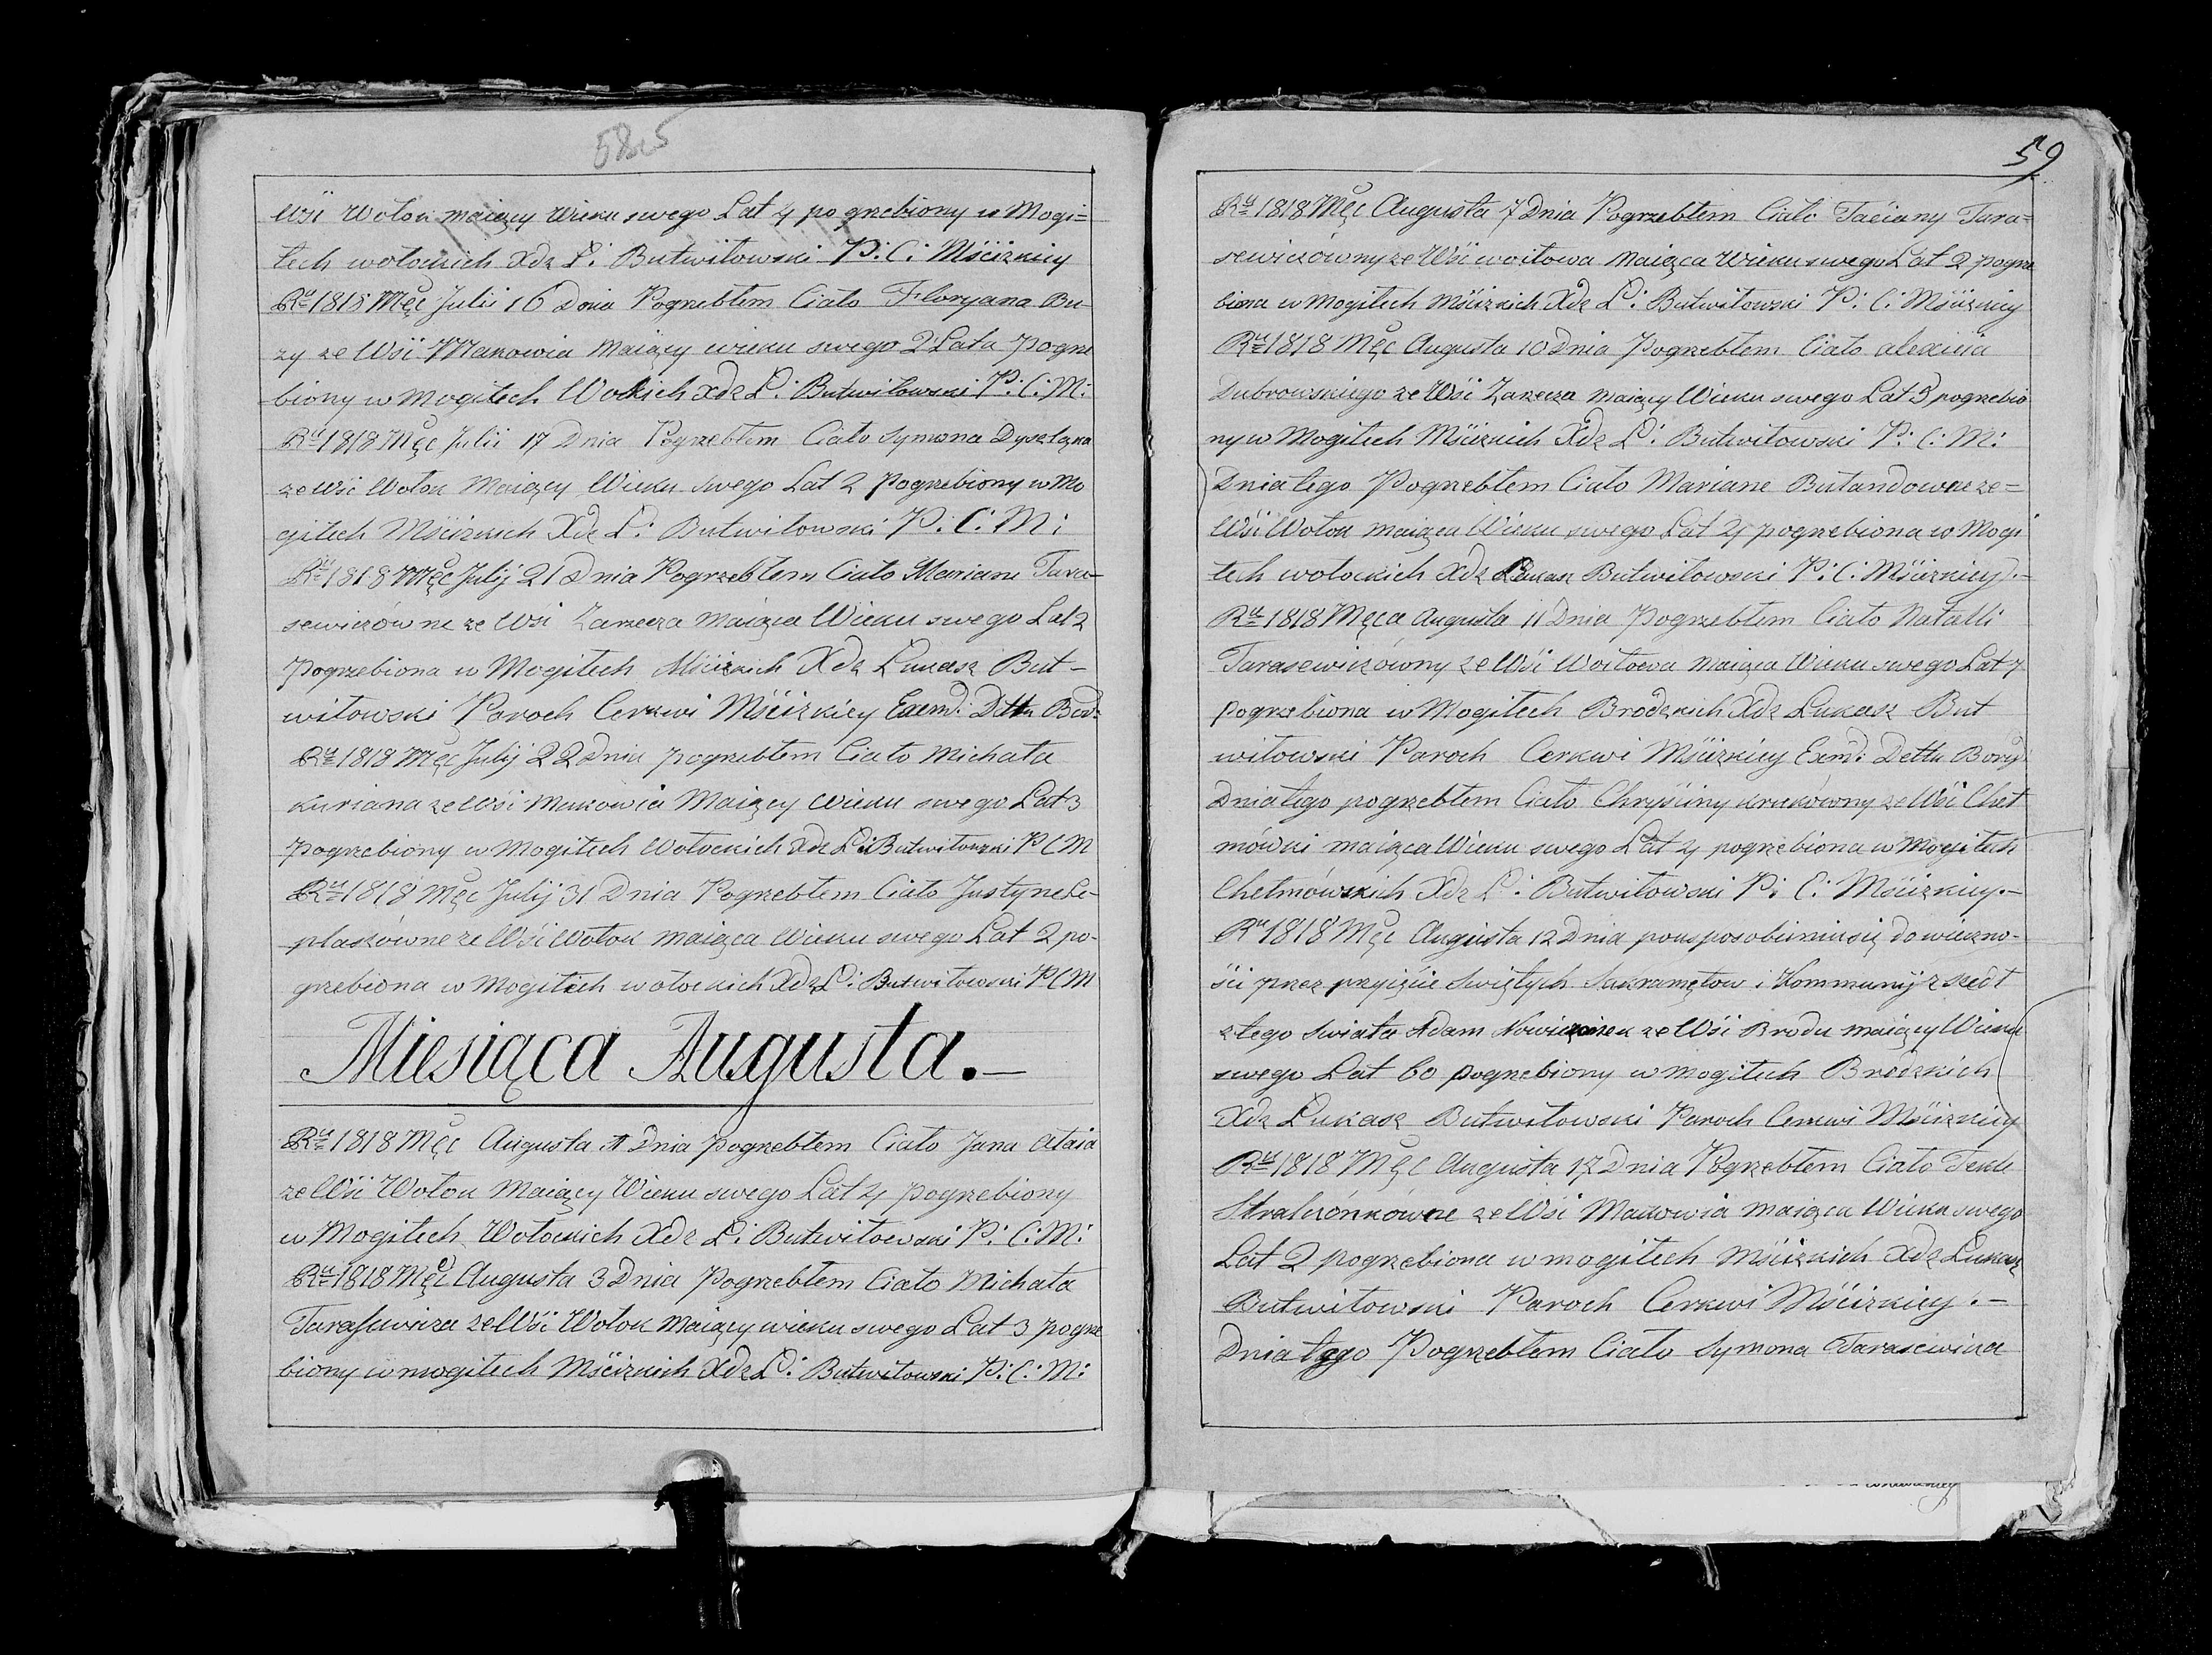 Wsi Wołok maiący Wieku swego Lat 4 pogrzebiony w Mogi=
łech wołockich Xdz Ł: Butwiłowski P: C: Mściżkiey
Ru 1818 Męc Julii 16 Dnia Pogrzebłem Ciało Floryana Bu-
zy ze Wsi Makowia Maiący wieku swego 2 Lata Pogrze
biony w Mogiłech Wockich Xdz Ł: Butwiłowski P: C: M:
Ru 1818 Męc Julii 17 Dnia Pogrzebłem Ciało Symona
ze Wsi Wołok Maiący Wieku Swego Lat 2 Pogrzebiony w Mo
giłech Mściżkich Xdz Ł: Butwiłowski P: C: M:
Ru 1818 Męc Julij 21 Dnia Pogrzebłem Ciało Mariane Tara-
sewiczówne ze Wsi Zarzecza Maiąca Wieku swego Lat 2
Pogrzebiona w Mogiłech Mściżkich Xdz Łukasz But-
wiłowski Paroch Cerkwi Mściżkiey Exemd:
Ru 1818 Męc Julij 22 Dnia pogrzebłem Ciało Michała
Kuriana ze Wsi Makowia Maiący Wieku swego Lat 3
Pogrzebiony w Mogiłech Wołockich Xdz Ł: Butwiłowski P C M
Ru 1818 Męc Julij 31 Dnia Pogrzebłem Ciało Justyne Ce-
płaskówne ze Wsi Wołok maiąca Wieku swego Lat 2 po-
grzebiona w Mogiłech wołockich Xdz Ł: Butwiłowski P C M
Miesiąca Augusta.—
Ru 1818 Męc Augusta Dnia pogrzebłem Ciało Jana Ataia
ze Wsi Wołok Maiący Wieku swego Lat 4 pogrzebiony
w Mogiłech Wołockich Xdz Ł: Butwiłowski P: C: M:
Ru 1818 Męc Augusta 3 Dnia Pogrzebłem Ciało Michała
Tarasewicza ze Wsi Wołok Maiący wieku swego Lat 3 pogrze
biony w mogiłech Mściżkich Xdz Ł: Butwiłowski P: C: M:
59
Ru 1818 Męc Augusta 7 Dnia Pogrzebłem Ciało Taciany Tara=
sewiczówny ze Wsi woitowa Maiąca Wieku swego Lat 2 pogrze
biona w Mogiłech Mściżkich Xdz Ł: Butwiłowski P: C: Mściżkiey
Ru 1818 Męc Augusta 10 Dnia Pogrzebłem Ciało alexieia
Dubrowskiego ze Wsi Zarzecza maiący Wieku swego Lat 3 pogrzebio
ny w Mogiłech Mściżkich Xdz Ł: Butwiłowski P: C: M:
Dnia tego Pogrzebłem Ciało Mariane Butandowne ze=
Wsi Wołok maiąca Wieku swego Lat 4 pogrzebiona w Mogi
łech wołockich Xdz Łukasz Butwiłowski P: C: Mściżkiey.—
Ru 1818 Męca Augusta 11 Dnia Pogrzebłem Ciało Natalli
Tarasewiczówny ze Wsi Woitowa maiąca Wieku swego Lat 7
pogrzebiona w Mogiłech Brodzkich Xdz Łukasz But
wiłowski Paroch Cerkwi Mściżkiey Exmd:
Dnia tego pogrzebłem Ciało Chryściny Krukówny ze Wsi Cheł
mówki maiąca Wieku swego Lat 4 pogrzebiona w Mogiłech
Chełmówskich Xdz Ł: Butwiłowski P: C: Mściżkiey.—
Ru 1818 Męc Augusta 12 Dnia po usposobieniu się do wieczno-
ści przez przyięcie Świętych Sakramętow i Kommunij z szedł
z tego Swiata Adam ze Wsi Brodu maiący Wieku
swego Lat 60 pogrzebiony w mogiłech Brodzkich
Xdz Łukasz Butwiłowski Paroch Cerkwi Mściżkiey
Ru 1818 Męc Augusta 17 Dnia Pogrzebłem Ciało Tekle
ze Wsi Makowia maiąca Wieku swego
Lat 2 pogrzebiona w mogiłech Mściżkich Xdz Łukasz
Butwiłowski Paroch Cerkwi Mściżkiey.—
Dnia tego Pogrzebłem Ciało Symona Tarasewicza